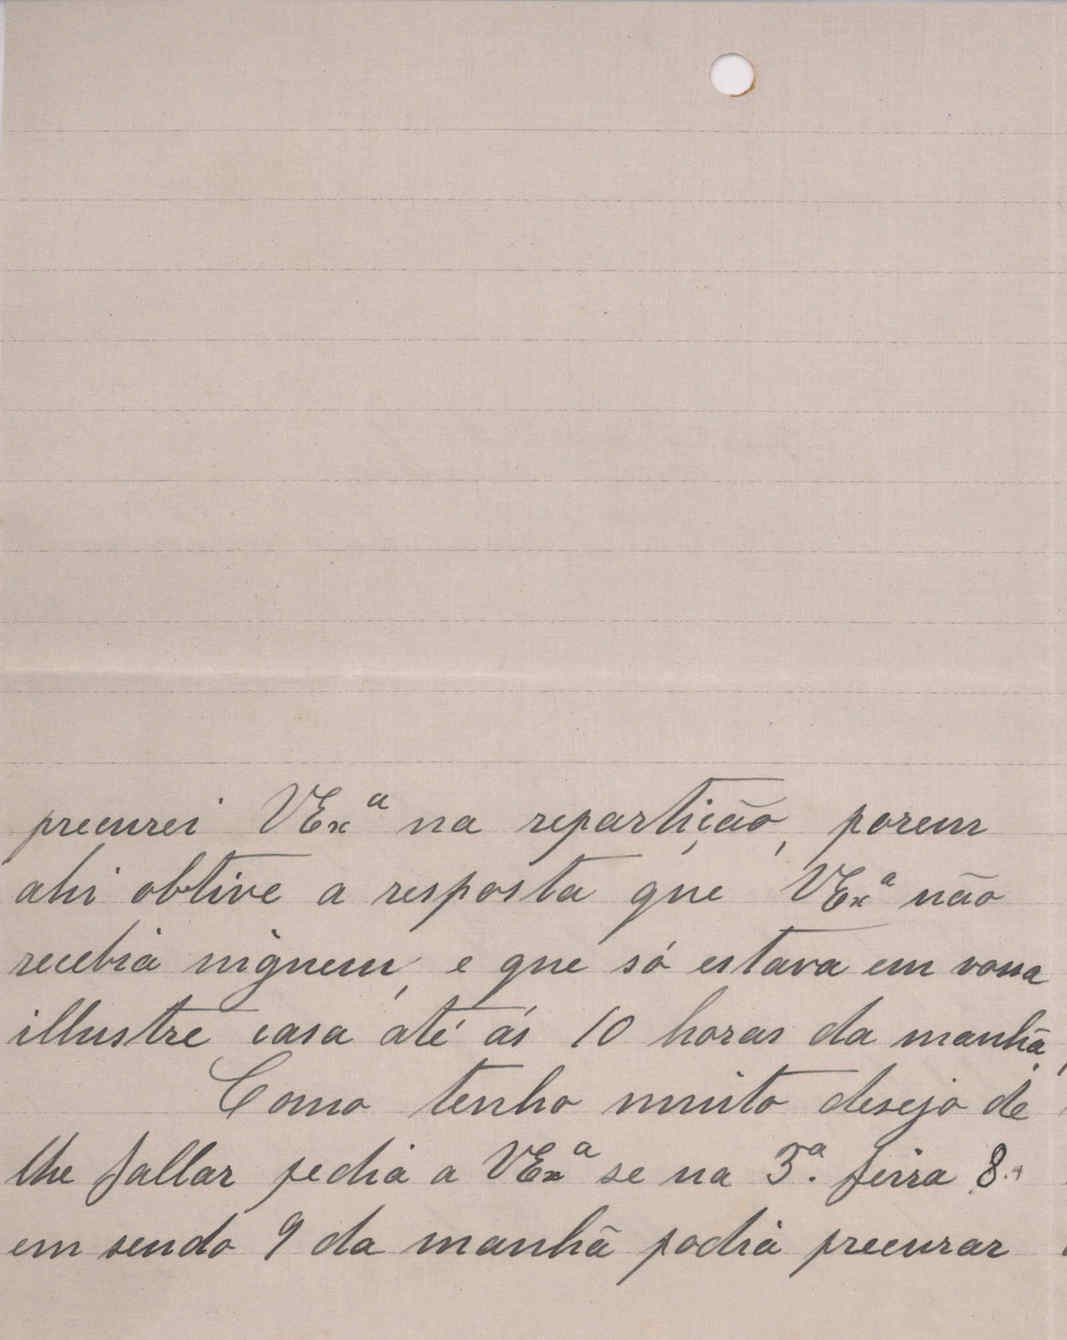 precurei VExª na repartição, porem
ahi obtive a resposta que VExª não
recebia niguem, e que só estava em vossa
illustre casa até ás 10 horas da manhã,
Como tenho muito desejo de
lhe fallar pedia a VExª se na 3ª. feira 8.
em sendo 9 da manhã podia precurar